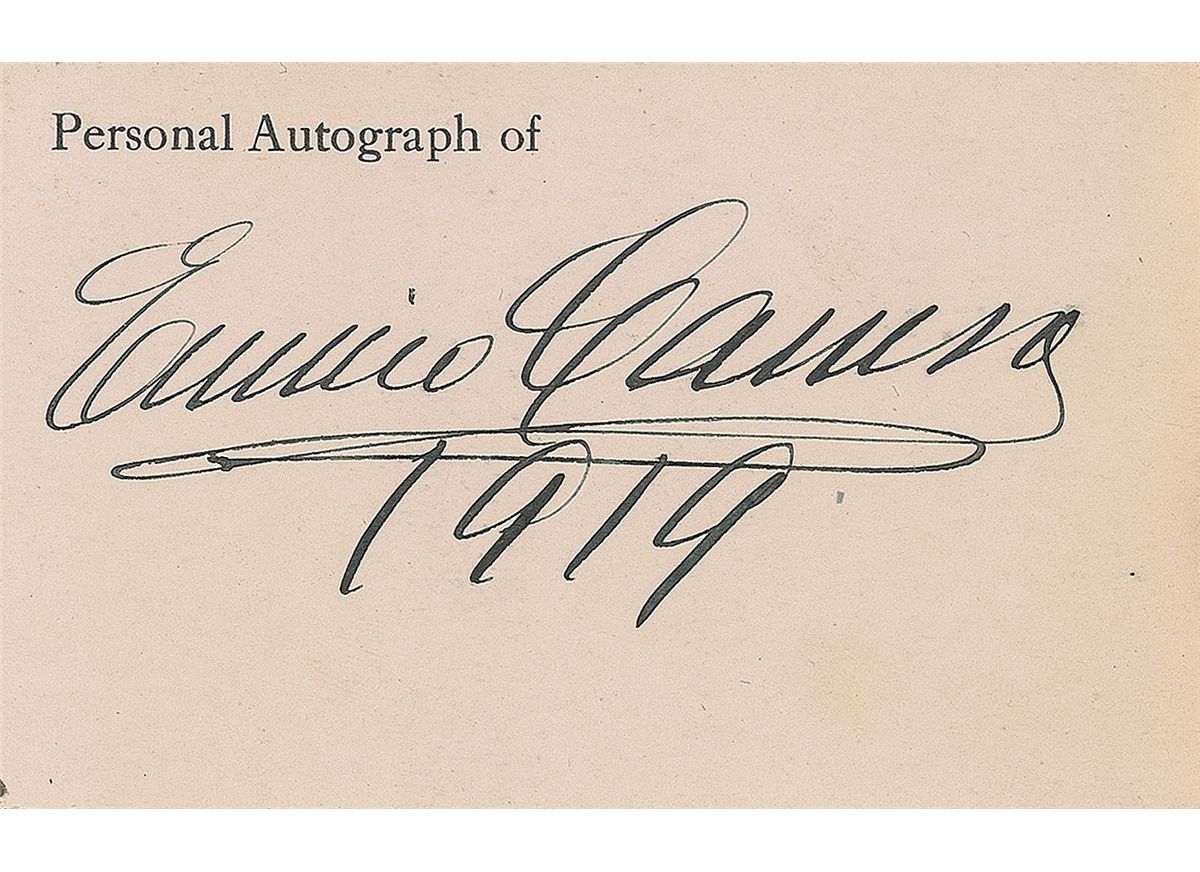 Personal Autograph of
Enrico Caruso
1919